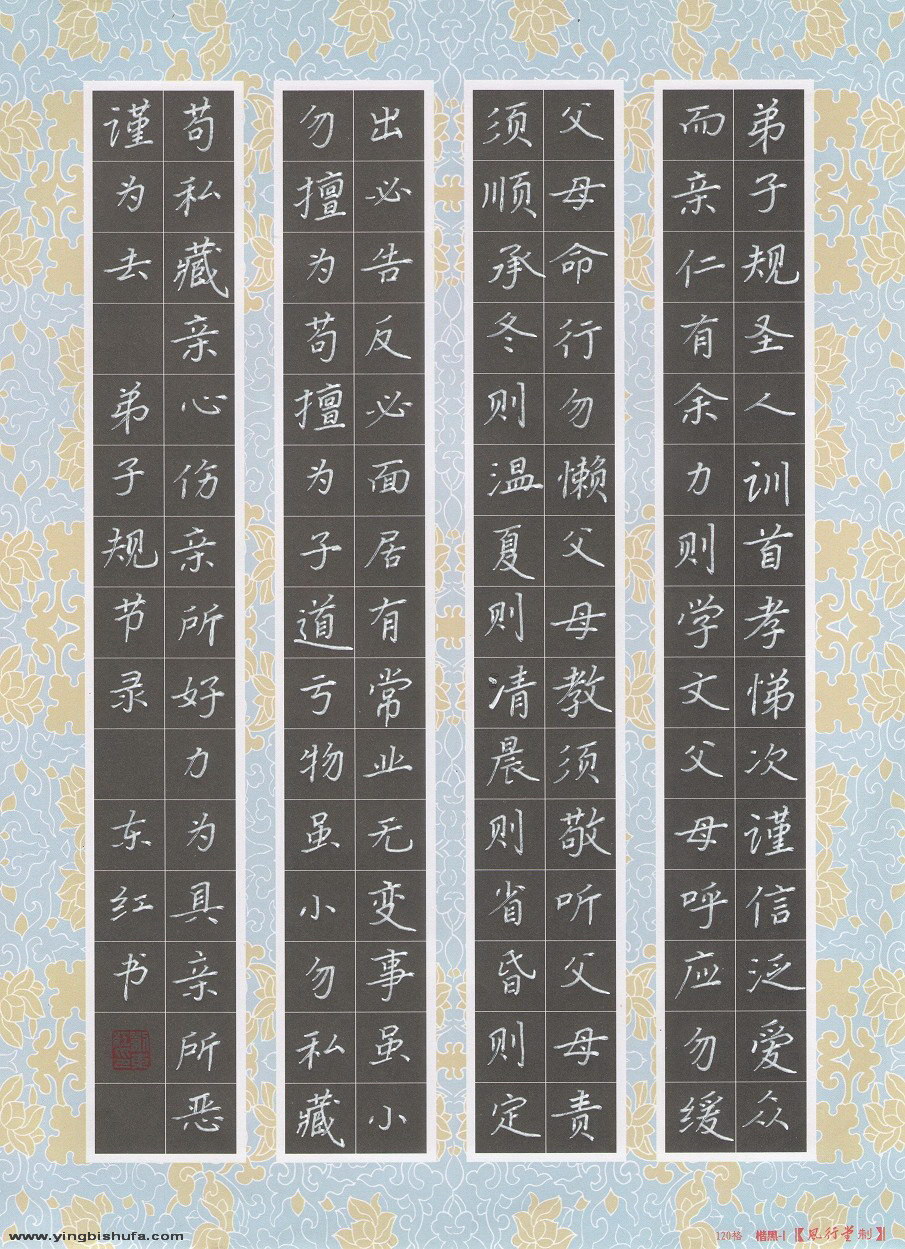 弟子规圣人训首孝悌次谨信泛爱众
而亲仁有余力则学文父母呼应勿缓
父母命行勿懒父母教须敬听父母责
须顺承冬则温夏则凊晨则省昏则定
出必告反必面居有常业无变事虽小
勿擅为苟擅为子道亏物虽小勿私藏
苟私藏亲心伤亲所好力为具亲所恶
谨为去 弟子规节录 东红书
www.yingbishufa.com
120格 楷黑-1【风行堂制】